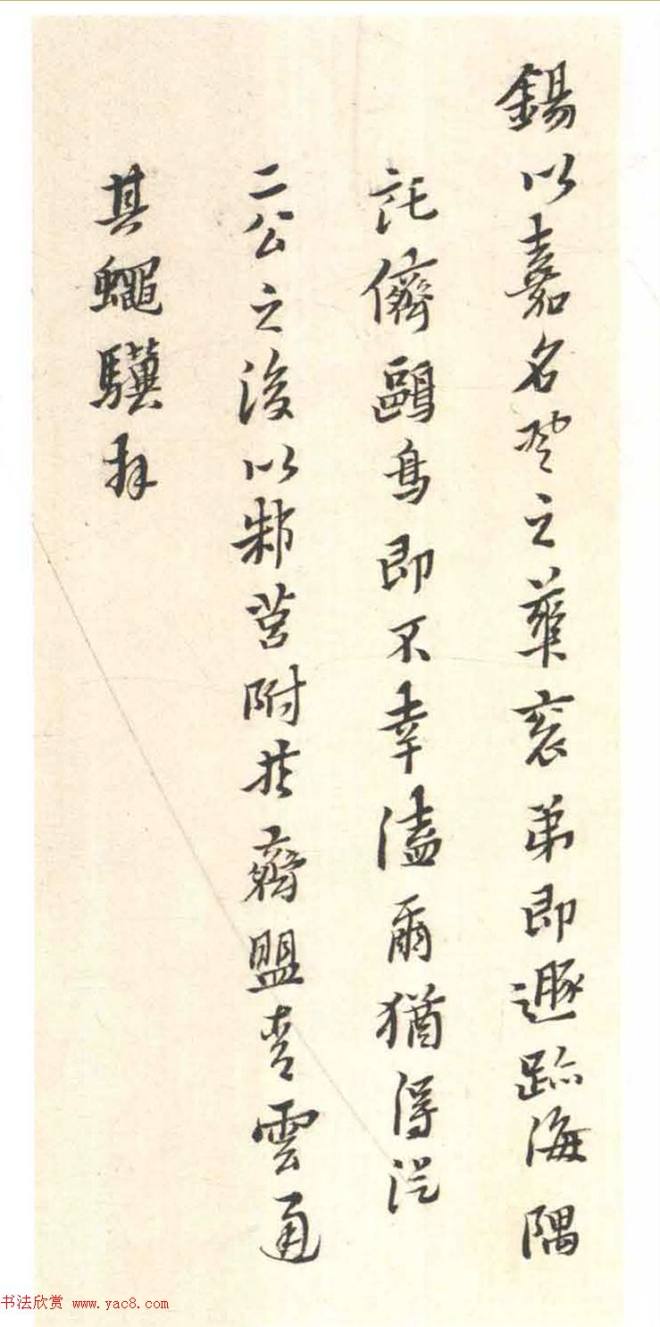 錫以嘉名登之華袞弟即遯跡海隅
託儕鷗鳥即不幸溘爾猶得從
二公之後以邾莒附於齊盟青雲通
其蠅驥拜
书法欣赏 www.yac8.com